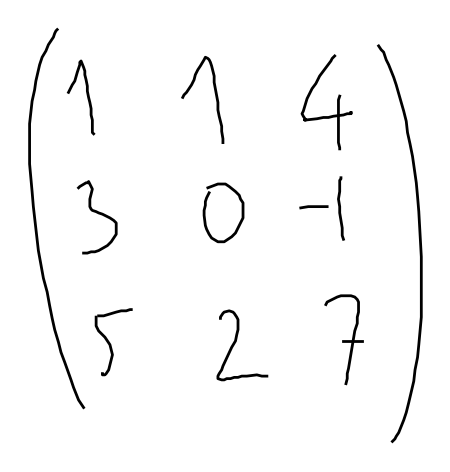 1 1 4
3 0 -1
5 2 7